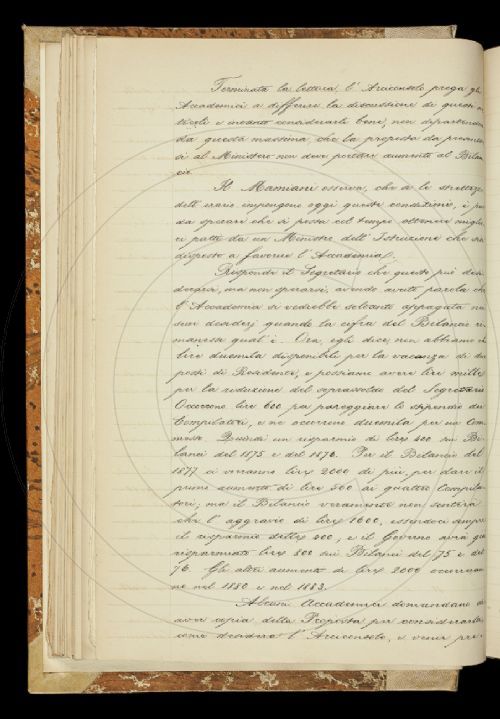 Terminata la lettura l'Arciconsolo prega gli
Accademici a differire la discussione di questi ar
ticoli e intanto considerarli bene, non dipartendosi
da questa massima, che la proposta da presentar
si al Ministero non deve portare aumento al Bilan
cio.
Il Mamiani osserva, che se le strettezze
dell'erario impongono oggi queste condizioni, è pur
da sperare che si possa col tempo ottenere miglio
ri patti da un Ministro dell'Istruzione che sia
disposto a favorire l'Accademia.
Risponde il Segretario che questo può desi
derarsi, ma non sperarsi, avendo avuto parola che
l'Accademia si vedrebbe soltanto appagata ne'
suoi desiderj quando la cifra del Bilancio ri
manesse qual'è. Ora, egli dice, noi abbiamo
lire duemila disponibili per la vacanza di due
posti di Residenti, e possiamo avere lire mille
per la riduzione del soprassoldo del Segretario
Occorrono lire 600 per pareggiare lo stipendio dei
Compilatori, e ne occorrono duemila per un Com
messo. Quindi un risparmio di lire 400 sui Bi
lanci del 1875 e del 1876. Per il Bilancio del
1877 ci vorranno lire 2000 di più, per dare il
primo aumento di lire 500 ai quattro Compila
tori; ma il Bilancio veramente non sentirà
che l'aggravio di lire 1600, essendoci sempre
il risparmio delle 400, e il Governo avrà già
risparmiato lire 800 sui Bilanci del 75 e del
76. Gli altri aumenti di lire 2000 occorreran
no nel 1880 e nel 1883.
Alcuni Accademici domandano di
aver copia della Proposta per considerarla
come desidera l'Arciconsolo, e venir pre